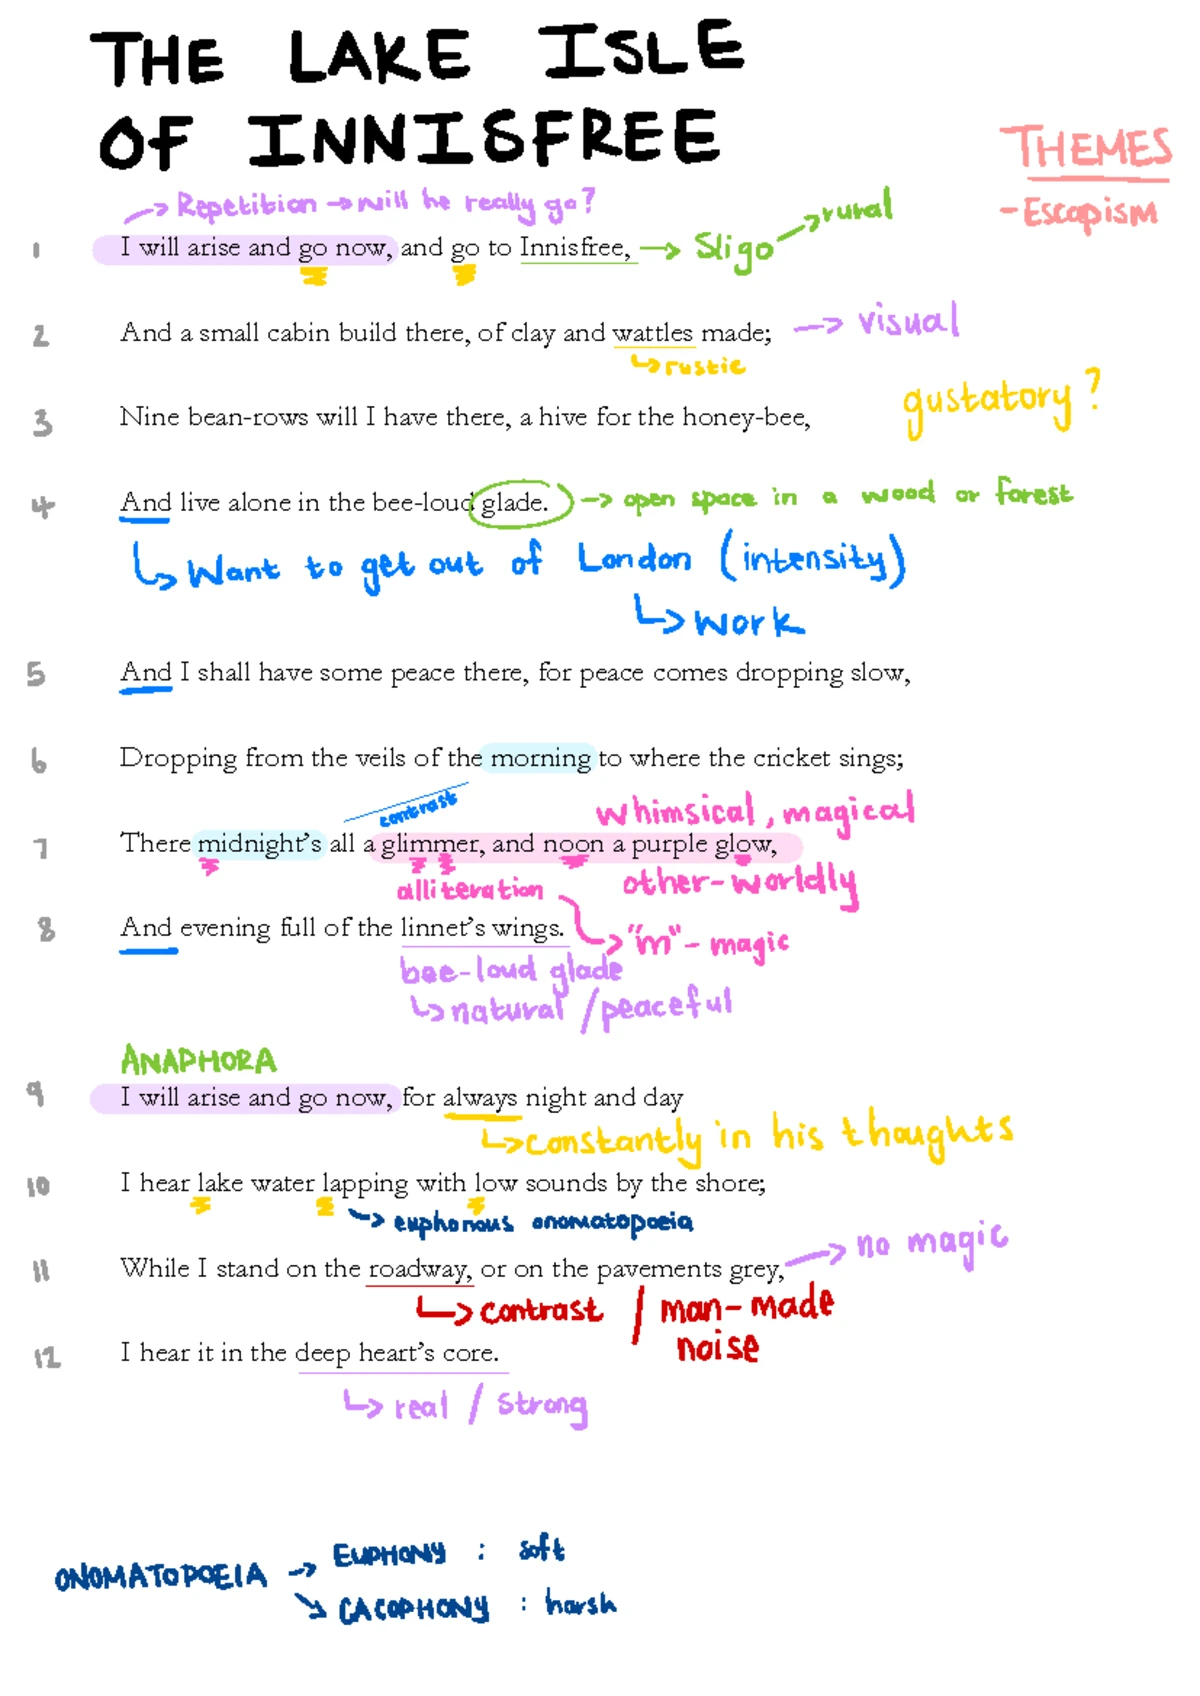 THE LAKE ISLE
OF INNISFREE
THEMES
- Escapism
→ Repetition → will he really go?
1 I will arise and go now, and go to Innisfree, → Sligo → rural
2 And a small cabin build there, of clay and wattles made; → visual
↳ rustic
gustatory?
3 Nine bean-rows will I have there, a hive for the honey-bee,
4 And live alone in the bee-loud glade. → open space in a wood or forest
↳ Want to get out of London (intensity)
↳ work
5 And I shall have some peace there, for peace comes dropping slow,
6 Dropping from the veils of the morning to where the cricket sings;
contrast
whimsical, magical
7 There midnight's all a glimmer, and noon a purple glow,
alliteration
other-worldly
8 And evening full of the linnet's wings.
→ "m" - magic
bee-loud glade
↳ natural / peaceful
ANAPHORA
9 I will arise and go now, for always night and day
↳ constantly in his thoughts
10 I hear lake water lapping with low sounds by the shore;
→ euphonous onomatopoeia
11 While I stand on the roadway, or on the pavements grey, → no magic
↳ contrast / man-made
noise
12 I hear it in the deep heart's core.
↳ real / strong
ONOMATOPOEIA → EUPHONY : soft
↘ CACOPHONY : harsh